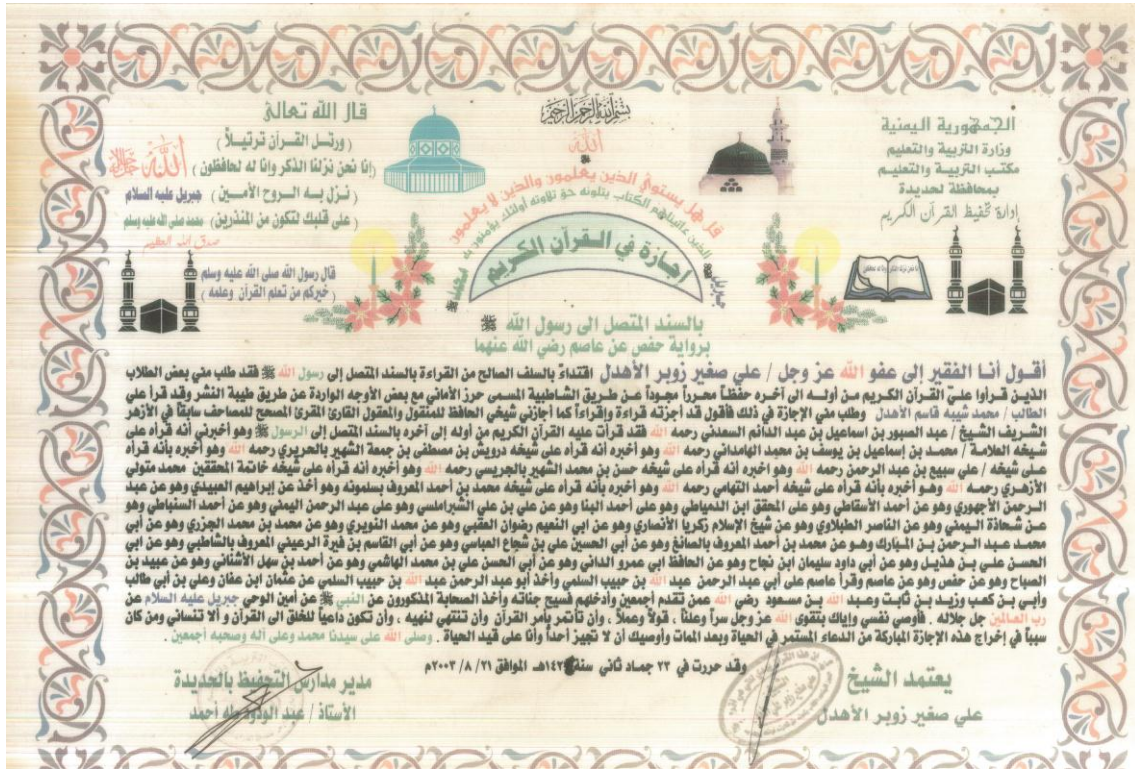 بسم الله الرحمن الرحيم
الله
الجمهورية اليمنية
وزارة التربية والتعليم
مكتب التربية والتعليم
بمحافظة لحديدة
إدارة تحفيظ القرآن الكريم
قال الله تعالى
( ورتل القرآن ترتيلاً )
(إنا نحن نزلنا الذكر وانا له لحافظون )
( نزل به الروح الأمين ) جبريل عليه السلام
( على قلبك لتكون من المنذرين) محمد صلى الله عليه وسلم
صدق الله العظيم
الله جلاله
قال رسول الله صلى الله عليه وسلم
( خيركم من تعلم القرآن وعلمه )
قل هل يستوي الذين يعلمون والذين لا يعلمون
الذين ءاتيناهم الكتاب يتلونه حق تلاوته أولئك يؤمنون به
جبريل
محمد ﷺ
إنا نحن نزلنا الذكر وانا له لحافظون
اجازة في القرآن الكريم
بالسند المتصل الى رسول الله ﷺ
برواية حفص عن عاصم رضي الله عنهما
أقول أنا الفقير إلى عفو الله عز وجل / علي صغير زوبر الأهدل اقتداءً بالسلف الصالح من القراءة بالسند المتصل إلى رسول الله ﷺ فقد طلب مني بعض الطلاب
الذين قرأوا عليّ القرآن الكريم من أوله الى آخره حفظاً محرراً مجوداً عن طريق الشاطبية المسمى حرز الأماني مع بعض الأوجه الواردة عن طريق طيبة النشر وقد قرأ علي
الطالب / محمد شيبه قاسم الأهدل وطلب مني الإجازة في ذلك فأقول قد أجزته قراءة وإقراءاً كما أجازني شيخي الحافظ للمنقول والمعقول القارئ المقرئ المصحح للمصاحف سابقاً في الأزهر
الشريف الشيخ / عبد الصبور بن اسماعيل بن عبد الدائم السعدني رحمه الله فقد قرأت عليه القرآن الكريم من أوله إلى آخره بالسند المتصل إلى الرسول ﷺ وهو أخبرني أنه قرأه على
شيخه العلامة / محمد بن إسماعيل بن يوسف بن محمد الهامداني رحمه الله وهو أخبره أنه قرأه على شيخه درويش بن مصطفى بن جمعة الشهير بالحريري رحمه الله وهو أخبره بأنه قرأه
على شيخه / علي سبيع بن عبد الرحمن رحمه الله وهو اخبره انه قرأه على شيخه حسن بن محمد الشهير بالجريسي رحمه الله وهو أخبره انه قرأه على شيخه خاتمة المحققين محمد متولي
الأزهري رحمه الله وهو أخبره بأنه قرأه على شيخه أحمد التهامي رحمه الله وهو أخبره بأنه قرأه على شيخه محمد بن أحمد المعروف بسلمونه وهو أخذ عن إبراهيم العبيدي وهو عن عبد
الرحمن الأجهوري وهو عن أحمد الأسقاطي وهو على المحقق ابن الدمياطي وهو على أحمد البنا وهو عن علي بن علي الشبراملسي وهو على عبد الرحمن اليمني وهو عن أحمد السنباطي وهو
عن شحاذة اليمني وهو عن الناصر الطبلاوي وهو عن شيخ الإسلام زكريا الأنصاري وهو عن ابي النعيم رضوان العقبي وهو عن محمد النويري وهو عن محمد بن محمد الجزري وهو عن أبي
محمد عبد الرحمن بن المبارك وهو عن محمد بن أحمد المعروف بالصائغ وهو عن أبي الحسين علي بن شجاع العباسي وهو عن أبي القاسم بن فيرة الرعيني المعروف بالشاطبي وهو عن ابي
الحسن علي بن هذيل وهو عن أبي داود سليمان ابن نجاح وهو عن الحافظ ابي عمرو الداني وهو عن أبي الحسن علي بن محمد الهاشمي وهو عن أحمد بن سهل الأشناني وهو عن عبيد بن
الصباح وهو عن حفص وهو عن عاصم وقرأ عاصم على أبي عبد الرحمن عبد الله بن حبيب السلمي وأخذ أبو عبد الرحمن عبد الله بن حبيب السلمي عن عثمان ابن عفان وعلي بن أبي طالب
وأبي بن كعب وزيد بن ثابت وعبد الله بن مسعود رضي الله عمن تقدم أجمعين وأدخلهم فسيح جناته وأخذ الصحابة المذكورون عن النبي ﷺ عن أمين الوحي جبريل عليه السلام عن
رب العالمين جل جلاله . فأوصي نفسي وإياك بتقوى الله عز وجل سراً وعلناً ، قولاً وعملاً ، وأن تأتمر بأمر القرآن وأن تنتهي لنهيه ، وأن تكون داعياً للخلق الى القرآن و ألا تنساني ومن كان
سبباً في إخراج هذه الإجازة المباركة من الدعاء المستمر في الحياة وبعد الممات وأوصيك أن لا تجيز أحداً وأنا على قيد الحياة . وصلى الله على سيدنا محمد وعلى آله وصحبه أجمعين .
وقد حررت في ٢٣ جماد ثاني سنة ١٤٢٤هـ الموافق ٢١/ ٨ / ٢٠٠٣م
يعتمد الشيخ
علي صغير زوبر الأهدل
مدير مدارس التحفيظ بالحديدة
الأستاذ / عبد الودود طه أحمد